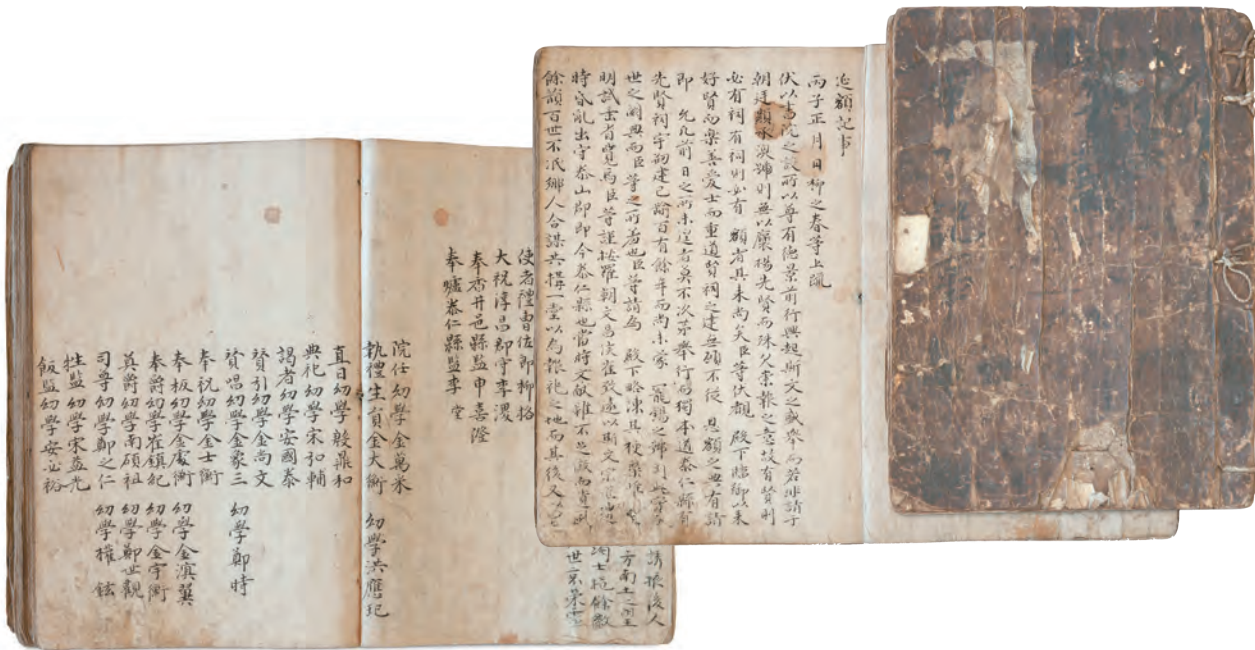 延額記事
丙子正月日柳之春等上疏
伏以書院之設所以尊有德景前行興起斯文之盛擧而若非請于
朝廷顯承渙號則無以褒揚先賢而殊崇報之意故有賢則
必有祠有祠則必有 額者其來尙矣臣等伏覩 殿下臨御以來
好賢而樂善愛士而重道賢祠之建無 不 恩額之典有請
即 允凡前日之所未遑者莫不次第擧行而獨本道泰仁縣有
先賢祠宇刱建已踰百有餘年而尙未蒙 寵錫之
世之闕典而臣等之所羞也臣等請爲 殿下略陳其梗槩惟 聖
明試垂省覽焉臣等謹按羅朝文昌侯崔致遠以斯文宗匠遭
時昏亂出守泰山郡即今泰仁縣也當時文獻雖不足徵而遺風
餘韻百世不泯鄕人合謀共構一堂以爲報祀之地而其後又以
請振後人
方南土之望
士挹餘敎
使者禮曹佐郎柳格
大祝淳昌郡守李
奉香井邑縣監申善澄
奉爐泰仁縣監李 堂
院任幼學金萬米
執禮生員金大衡 幼學洪應玘
直日幼學殷鼎和
典祀幼學宋弘輔
謁者幼學安國泰
贊引幼學金尙文
贊唱幼學金象三 幼學鄭時
奉祝幼學金士衡
奉板幼學金處衡 幼學金濱翼
奉爵幼學崔鎭紀 幼學金宇衡
奠爵幼學南碩祖 幼學鄭世觀
司尊幼學鄭之仁 幼學權 鉉
牲監幼學宋益光
飯監幼學安必裕